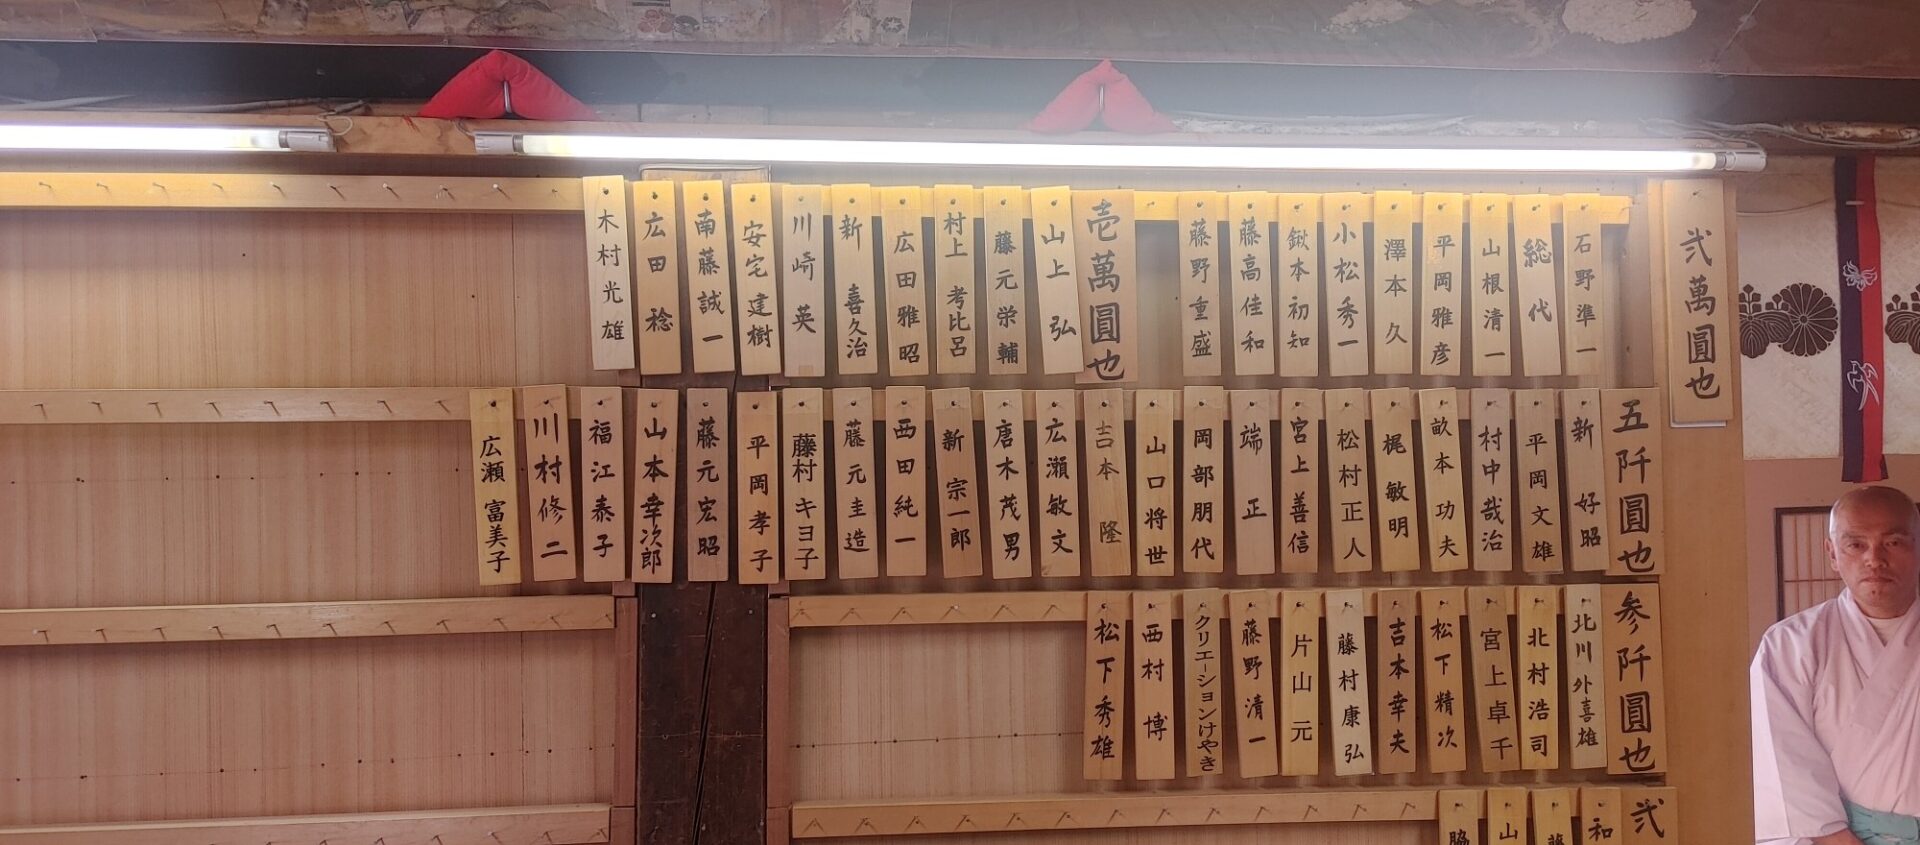 弐萬圓也
石野準一
総代
山根清一
平岡雅彦
澤本久
小松秀一
鍬本初知
藤高佳和
藤野重盛
壱萬圓也
山上弘
藤元栄輔
村上考比呂
広田雅昭
新喜久治
川崎英
安宅建樹
南藤誠一
広田稔
木村光雄
五阡圓也
新好昭
平岡文雄
村中哉治
畝本功夫
梶敏明
松村正人
宮上善信
端正
岡部朋代
山口将世
吉本隆
広瀬敏文
唐木茂男
新宗一郎
西田純一
藤元圭造
藤村キヨ子
平岡孝子
藤元宏昭
山本幸次郎
福江泰子
川村修二
広瀬富美子
参阡圓也
北川外喜雄
北村浩司
宮上卓千
松下精次
吉本幸夫
藤村康弘
片山元
藤野清一
クリエーションけやき
西村博
松下秀雄
弐
和
藤
山
脇